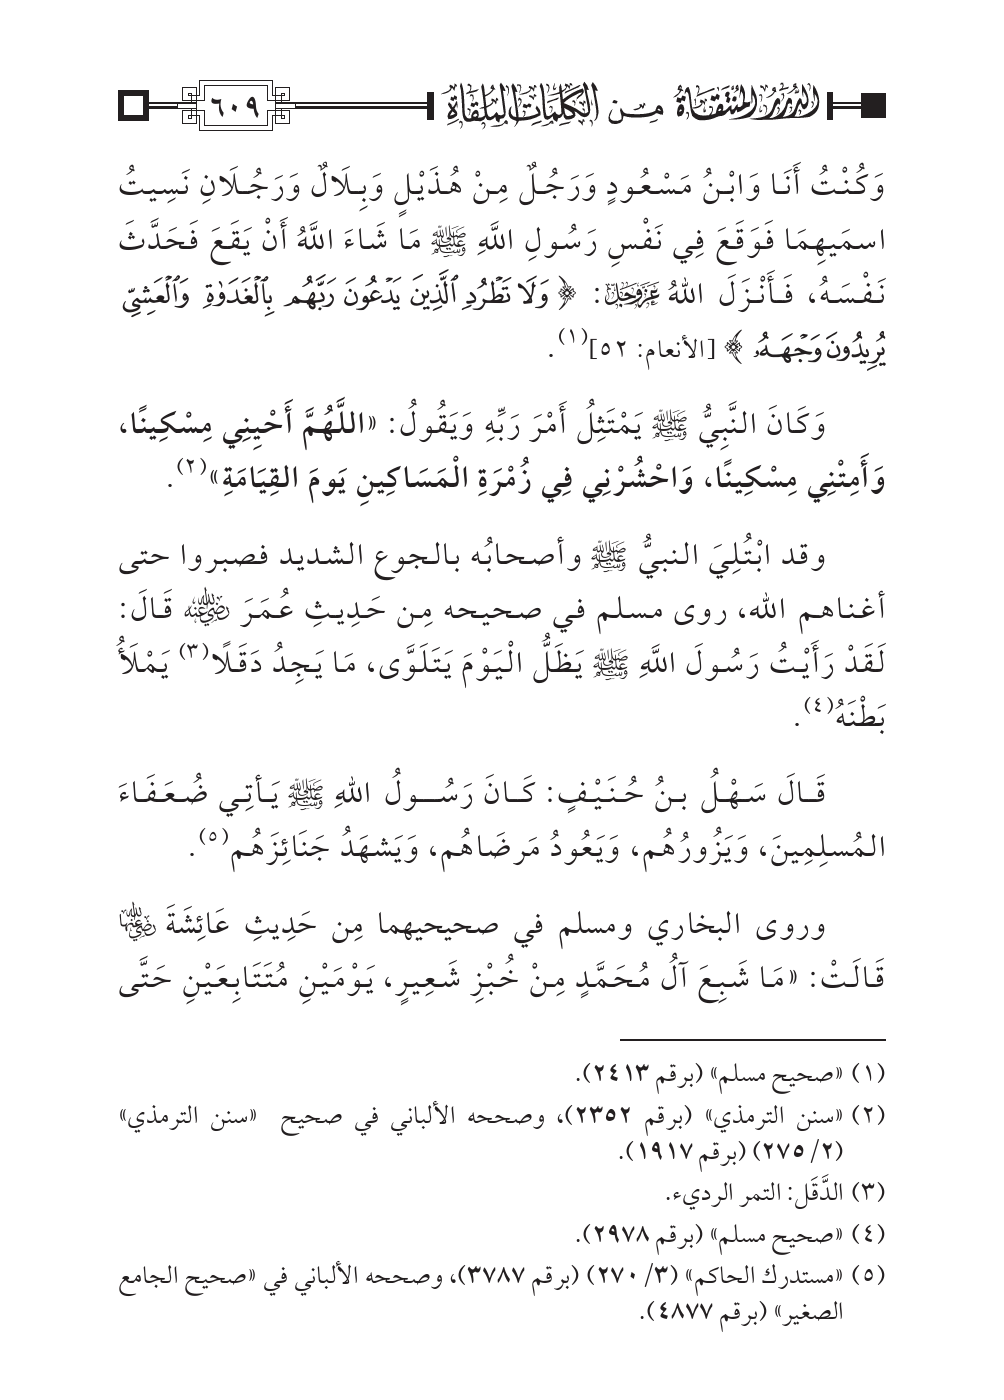 الدُّرَرُ المُنْتَقَاةُ مِن الكَلِمَاتِ المُلْقَاةِ ٦٠٩
وَكُنْتُ أَنَا وَابْنُ مَسْعُودٍ وَرَجُلٌ مِنْ هُذَيْلٍ وَبِلَالٌ وَرَجُلَانِ نَسِيتُ
اسمَيهِمَا فَوَقَعَ فِي نَفْسِ رَسُولِ اللَّهِ ﷺ مَا شَاءَ اللَّهُ أَنْ يَقَعَ فَحَدَّثَ
نَفْسَهُ، فَأَنْزَلَ اللهُ عَزَّوَجَلَّ: ﴿ وَلَا تَطۡرُدِ ٱلَّذِينَ يَدۡعُونَ رَبَّهُم بِٱلۡغَدَوٰةِ وَٱلۡعَشِيِّ
يُرِيدُونَ وَجۡهَهُۥ ﴾ [الأنعام: ٥٢](١).
وَكَانَ النَّبِيُّ ﷺ يَمْتَثِلُ أَمْرَ رَبِّهِ وَيَقُولُ: «اللَّهُمَّ أَحْيِنِي مِسْكِينًا،
وَأَمِتْنِي مِسْكِينًا، وَاحْشُرْنِي فِي زُمْرَةِ الْمَسَاكِينِ يَومَ القِيَامَةِ»(٢).
وقد ابْتُلِيَ النبيُّ ﷺ وأصحابُه بالجوع الشديد فصبروا حتى
أغناهم الله، روى مسلم في صحيحه مِن حَدِيثِ عُمَرَ رَضِيَ اللَّهُ عَنْهُ قَالَ:
لَقَدْ رَأَيْتُ رَسُولَ اللَّهِ ﷺ يَظَلُّ الْيَوْمَ يَتَلَوَّى، مَا يَجِدُ دَقَلًا(٣) يَمْلَأُ
بَطْنَهُ(٤).
قَالَ سَهْلُ بنُ حُنَيْفٍ: كَانَ رَسُولُ اللهِ ﷺ يَأتِي ضُعَفَاءَ
المُسلِمِينَ، وَيَزُورُهُم، وَيَعُودُ مَرضَاهُم، وَيَشهَدُ جَنَائِزَهُم(٥).
وروى البخاري ومسلم في صحيحيهما مِن حَدِيثِ عَائِشَةَ رَضِيَ اللَّهُ عَنْهَا
قَالَتْ: «مَا شَبِعَ آلُ مُحَمَّدٍ مِنْ خُبْزِ شَعِيرٍ، يَوْمَيْنِ مُتَتَابِعَيْنِ حَتَّى
(١) «صحيح مسلم» (برقم ٢٤١٣).
(٢) «سنن الترمذي» (برقم ٢٣٥٢)، وصححه الألباني في صحيح «سنن الترمذي»
(٢/ ٢٧٥) (برقم ١٩١٧).
(٣) الدَّقَل: التمر الرديء.
(٤) «صحيح مسلم» (برقم ٢٩٧٨).
(٥) «مستدرك الحاكم» (٣/ ٢٧٠) (برقم ٣٧٨٧)، وصححه الألباني في «صحيح الجامع
الصغير» (برقم ٤٨٧٧).